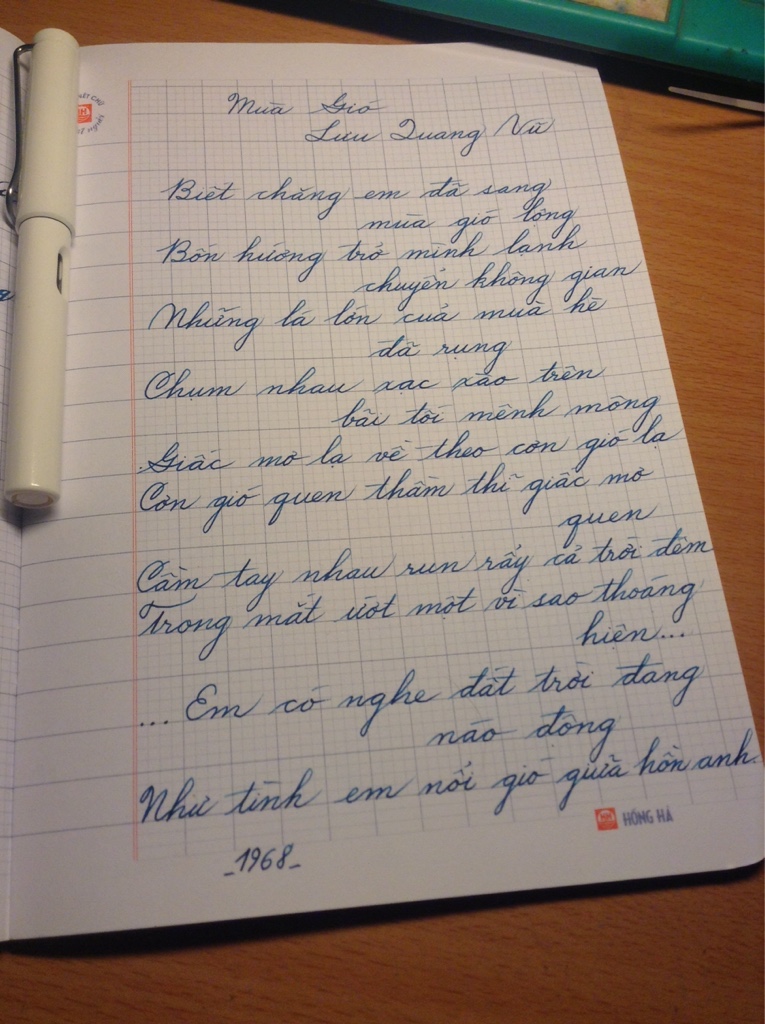 Mùa Gió
Lưu Quang Vũ
Biết chăng em đã sang
mùa gió lộng
Bốn hướng trở mình lạnh
chuyển không gian
Những lá lớn của mùa hè
đã rụng
Chụm nhau xạc xào trên
bãi tối mênh mông
Giấc mơ lạ về theo cơn gió lạ
Cơn gió quen thầm thĩ giấc mơ
quen
Cầm tay nhau run rẩy cả trời đêm
Trong mắt ướt một vì sao thoáng
hiện...
... Em có nghe đất trời đang
náo động
Như tình em nổi gió giữa hồn anh.
HỒNG HÀ
_1968_